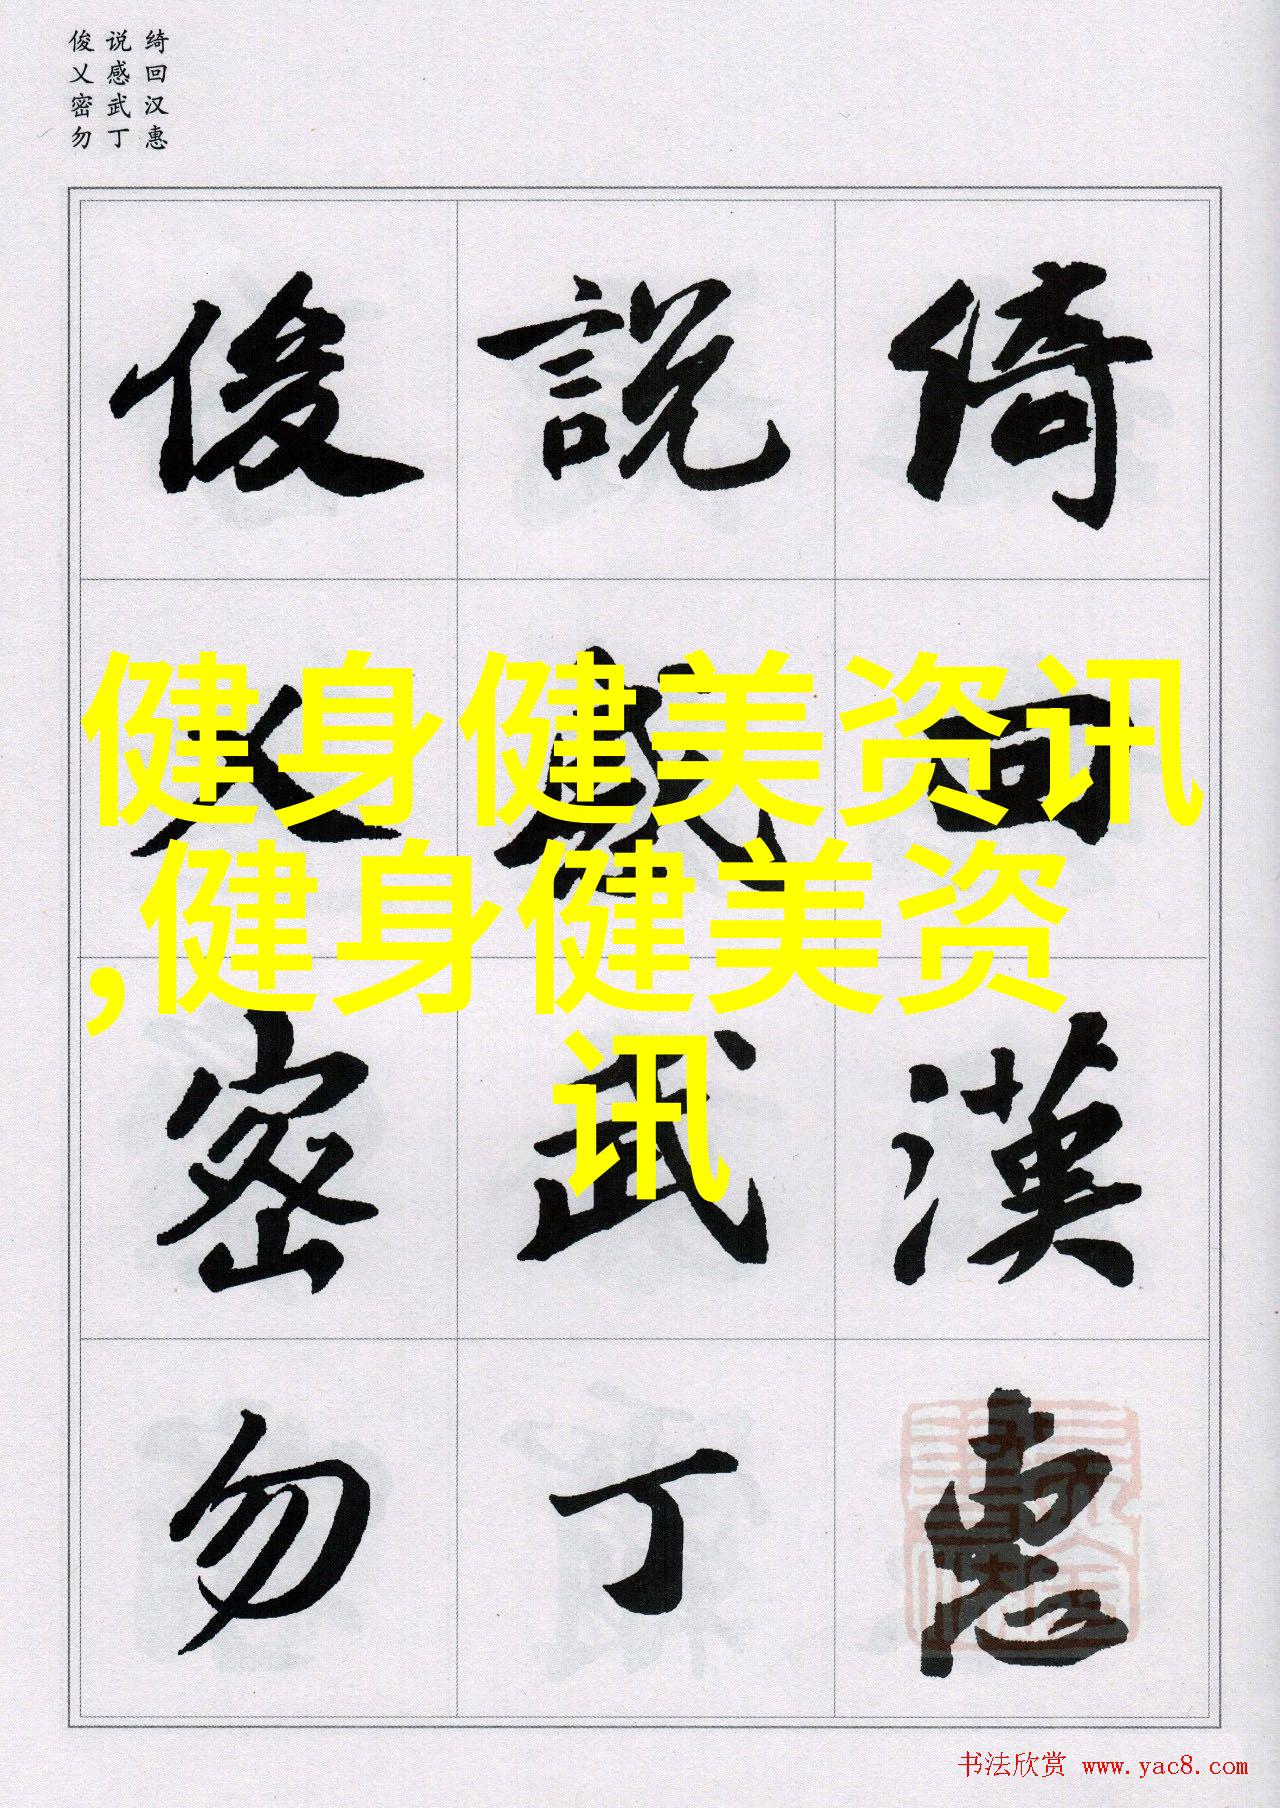 俊 说 绮
乂 感 回
密 武 汉
勿 丁 惠
俊 說 綺
乂 感 回
密 武 漢
勿 丁 惠
健身健美资讯
,健身健美资
讯
书法欣赏 www.yac8.com